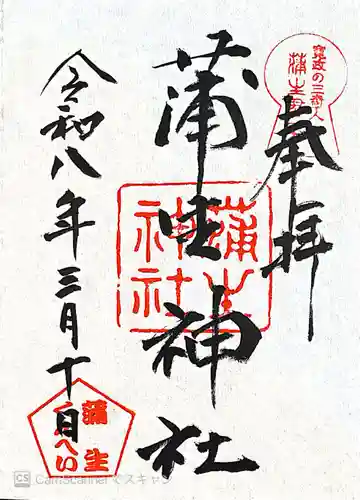 奉拝
寛政の三奇人
蒲生
蒲生神社
蒲生
神社
令和八年三月十日
蒲生
くんぺい
CS CamScannerでスキャン